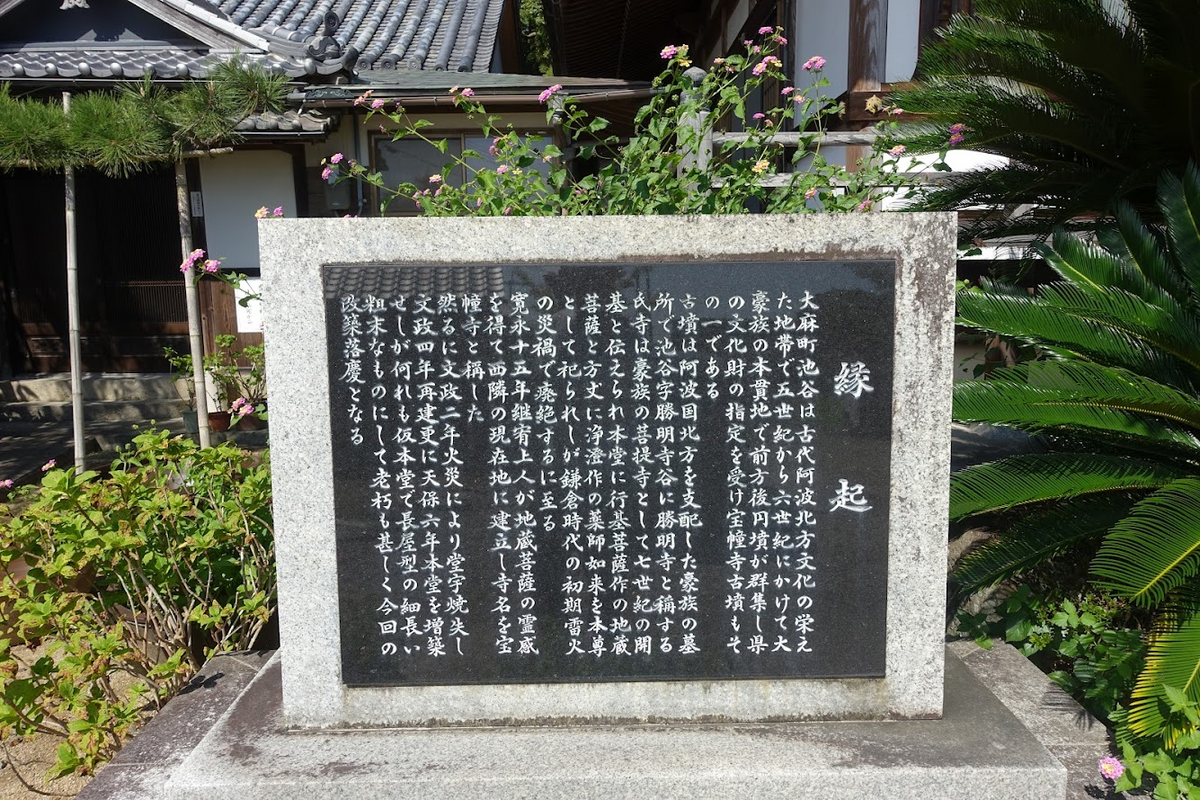 縁起
大麻町池谷は古代阿波北方文化の栄え
た地帯で五世紀から六世紀にかけて大
豪族の本貫地で前方後円墳が群集し県
の文化財の指定を受け宝幢寺古墳もそ
の一である
古墳は阿波国北方を支配した豪族の墓
所で池谷字勝明寺谷に勝明寺と称する
氏寺は豪族の菩提寺として七世紀の開
基と伝えられ本堂に行基菩薩作の地蔵
菩薩と方丈に浄澄作の薬師如来を本尊
として祀られしが鎌倉時代の初期雷火
の災禍で廃絶するに至る
寛永十五年継宥上人が地蔵菩薩の霊感
を得て西隣の現在地に建立し寺名を宝
幢寺と称した
然るに文政二年火災により堂宇焼失し
文政四年再建更に天保六年本堂を増築
せしが何れも仮本堂で長屋型の細長い
粗末なものにして老朽も甚しく今回の
改築落慶となる